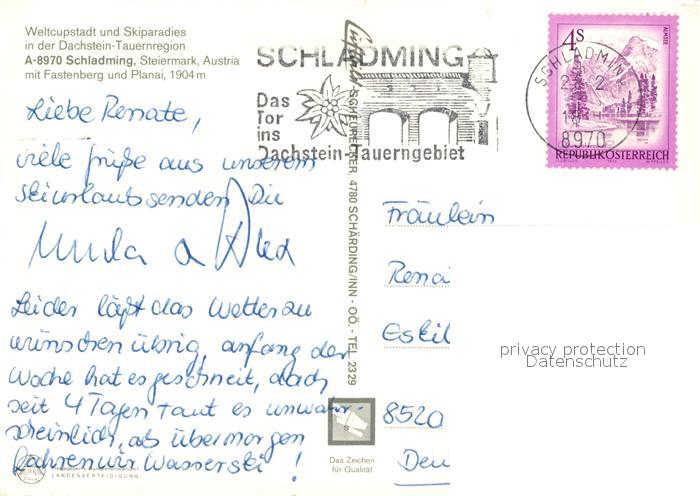 Weltcupstadt und Skiparadies
in der Dachstein-Tauernregion
A-8970 Schladming, Steiermark, Austria
mit Fastenberg und Planai, 1904 m
Liebe Renate,
viele Grüße aus unserem
Skiurlaub senden Dir
Leider läßt das Wetter zu
wünschen übrig, anfang der
Woche hat es geschneit, doch
seit 4 Tagen taut es unwahr-
scheinlich, ab übermorgen
fahren wir Wasserski !
LANDESVERTEIDIGUNG
SCHLADMING
Das
Tor
ins
Dachstein-Tauerngebiet
4780 SCHÄRDING/INN - OÖ. - TEL. 2329
Das Zeichen
für Qualität
SCHLADMING
8970
4S
ALMSEE
REPUBLIK ÖSTERREICH
Fräulein
Rena
8520
privacy protection
Datenschutz